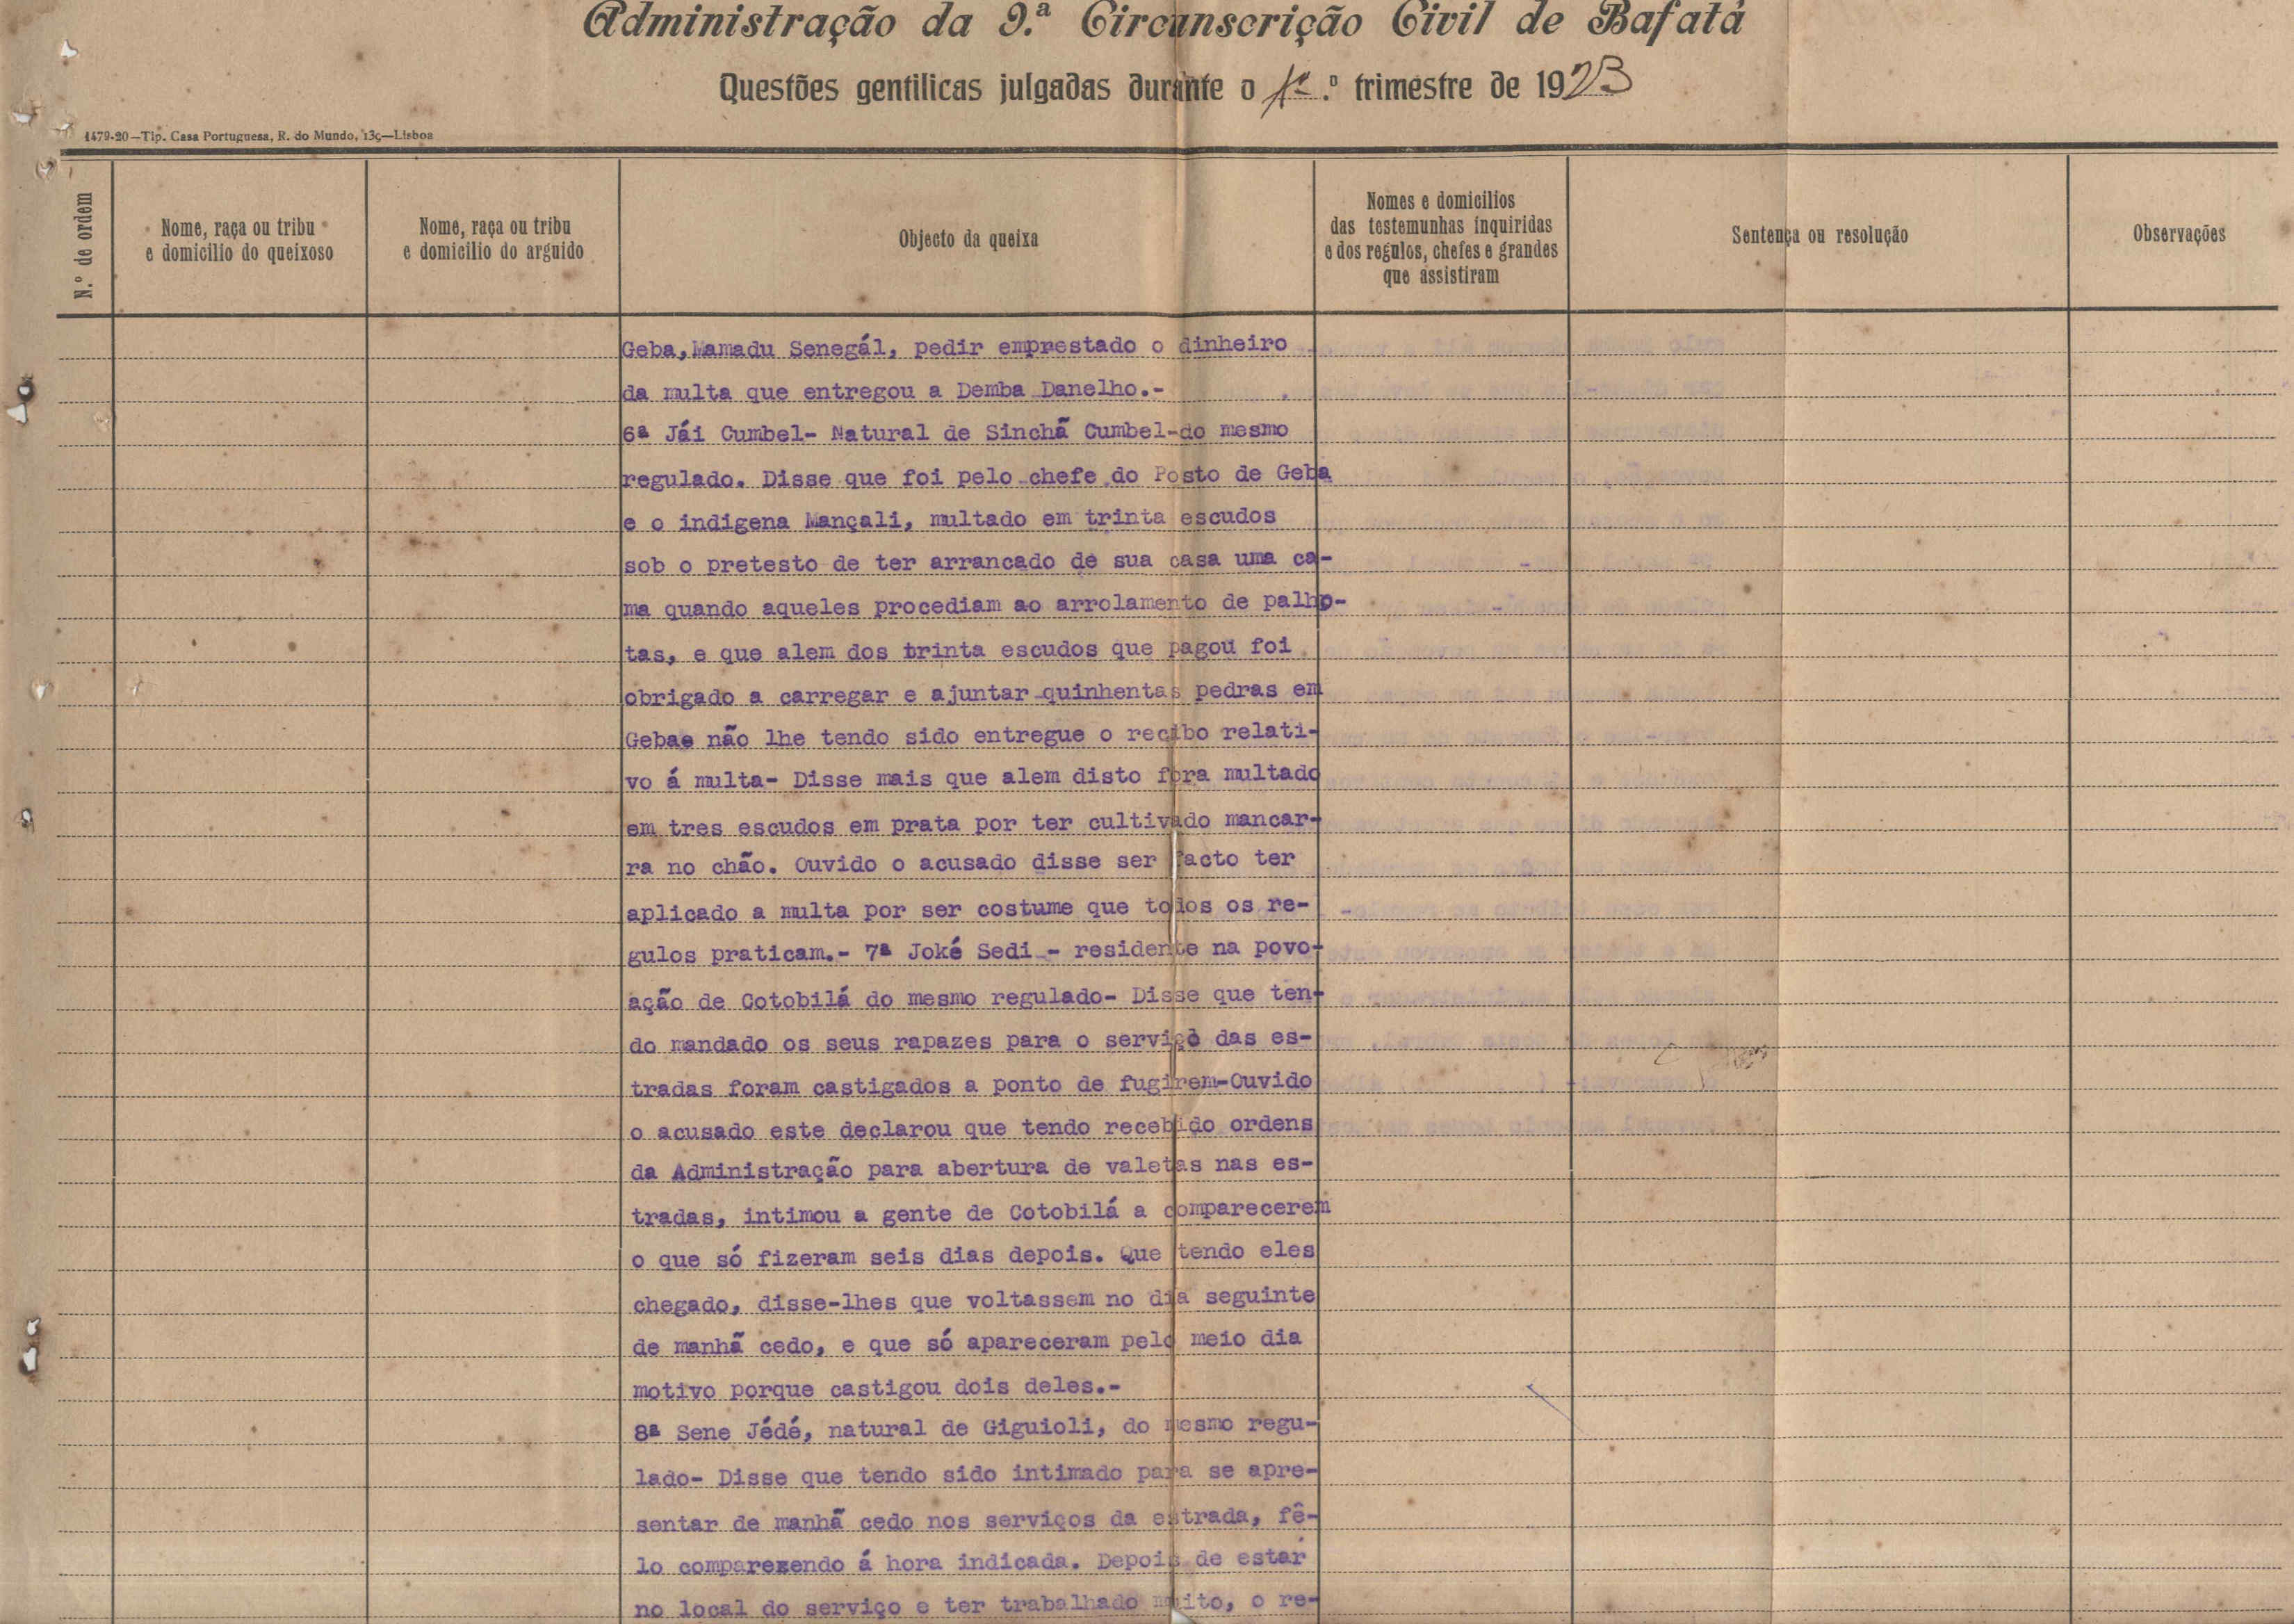 Administração da 9.ª Circunscrição Civil de Bafatá
Questões gentilicas julgadas durante o 1º.º trimestre de 1923
1479-20—Tip. Casa Portuguesa, R. do Mundo, 139—Lisboa
N.º de ordem
Nome, raça ou tribu
e domicilio do queixoso
Nome, raça ou tribu
e domicilio do arguido
Objecto da queixa
Nomes e domicilios
das testemunhas inquiridas
e dos regulos, chefes e grandes
que assistiram
Sentença ou resolução
Observações
Geba,Mamadu Senegál, pedir emprestado o dinheiro
da multa que entregou a Demba Danelho.-
6ª Jái Cumbel- Natural de Sinchã Cumbel-do mesmo
regulado. Disse que foi pelo chefe do Posto de Geba
e o indigena Mançali, multado em trinta escudos
sob o pretesto de ter arrancado de sua casa uma ca-
ma quando aqueles procediam ao arrolamento de palho-
tas, e que alem dos trinta escudos que pagou foi
obrigado a carregar e ajuntar quinhentas pedras em
Gebae não lhe tendo sido entregue o recibo relati-
vo á multa- Disse mais que alem disto fora multado
em tres escudos em prata por ter cultivado mancar-
ra no chão. Ouvido o acusado disse ser facto ter
aplicado a multa por ser costume que todos os re-
gulos praticam.- 7ª Joké Sedi - residente na povo-
ação de Cotobilá do mesmo regulado- Disse que ten-
do mandado os seus rapazes para o serviço das es-
tradas foram castigados a ponto de fugirem-Ouvido
o acusado este declarou que tendo recebido ordens
da Administração para abertura de valetas nas es-
tradas, intimou a gente de Cotobilá a comparecerem
o que só fizeram seis dias depois. Que tendo eles
chegado, disse-lhes que voltassem no dia seguinte
de manhã cedo, e que só apareceram pelo meio dia
motivo porque castigou dois deles.-
8ª Sene Jédé, natural de Giguioli, do mesmo regu-
lado- Disse que tendo sido intimado para se apre-
sentar de manhã cedo nos serviços da estrada, fê-
lo comparezendo á hora indicada. Depois de estar
no local do serviço e ter trabalhado muito, o re-